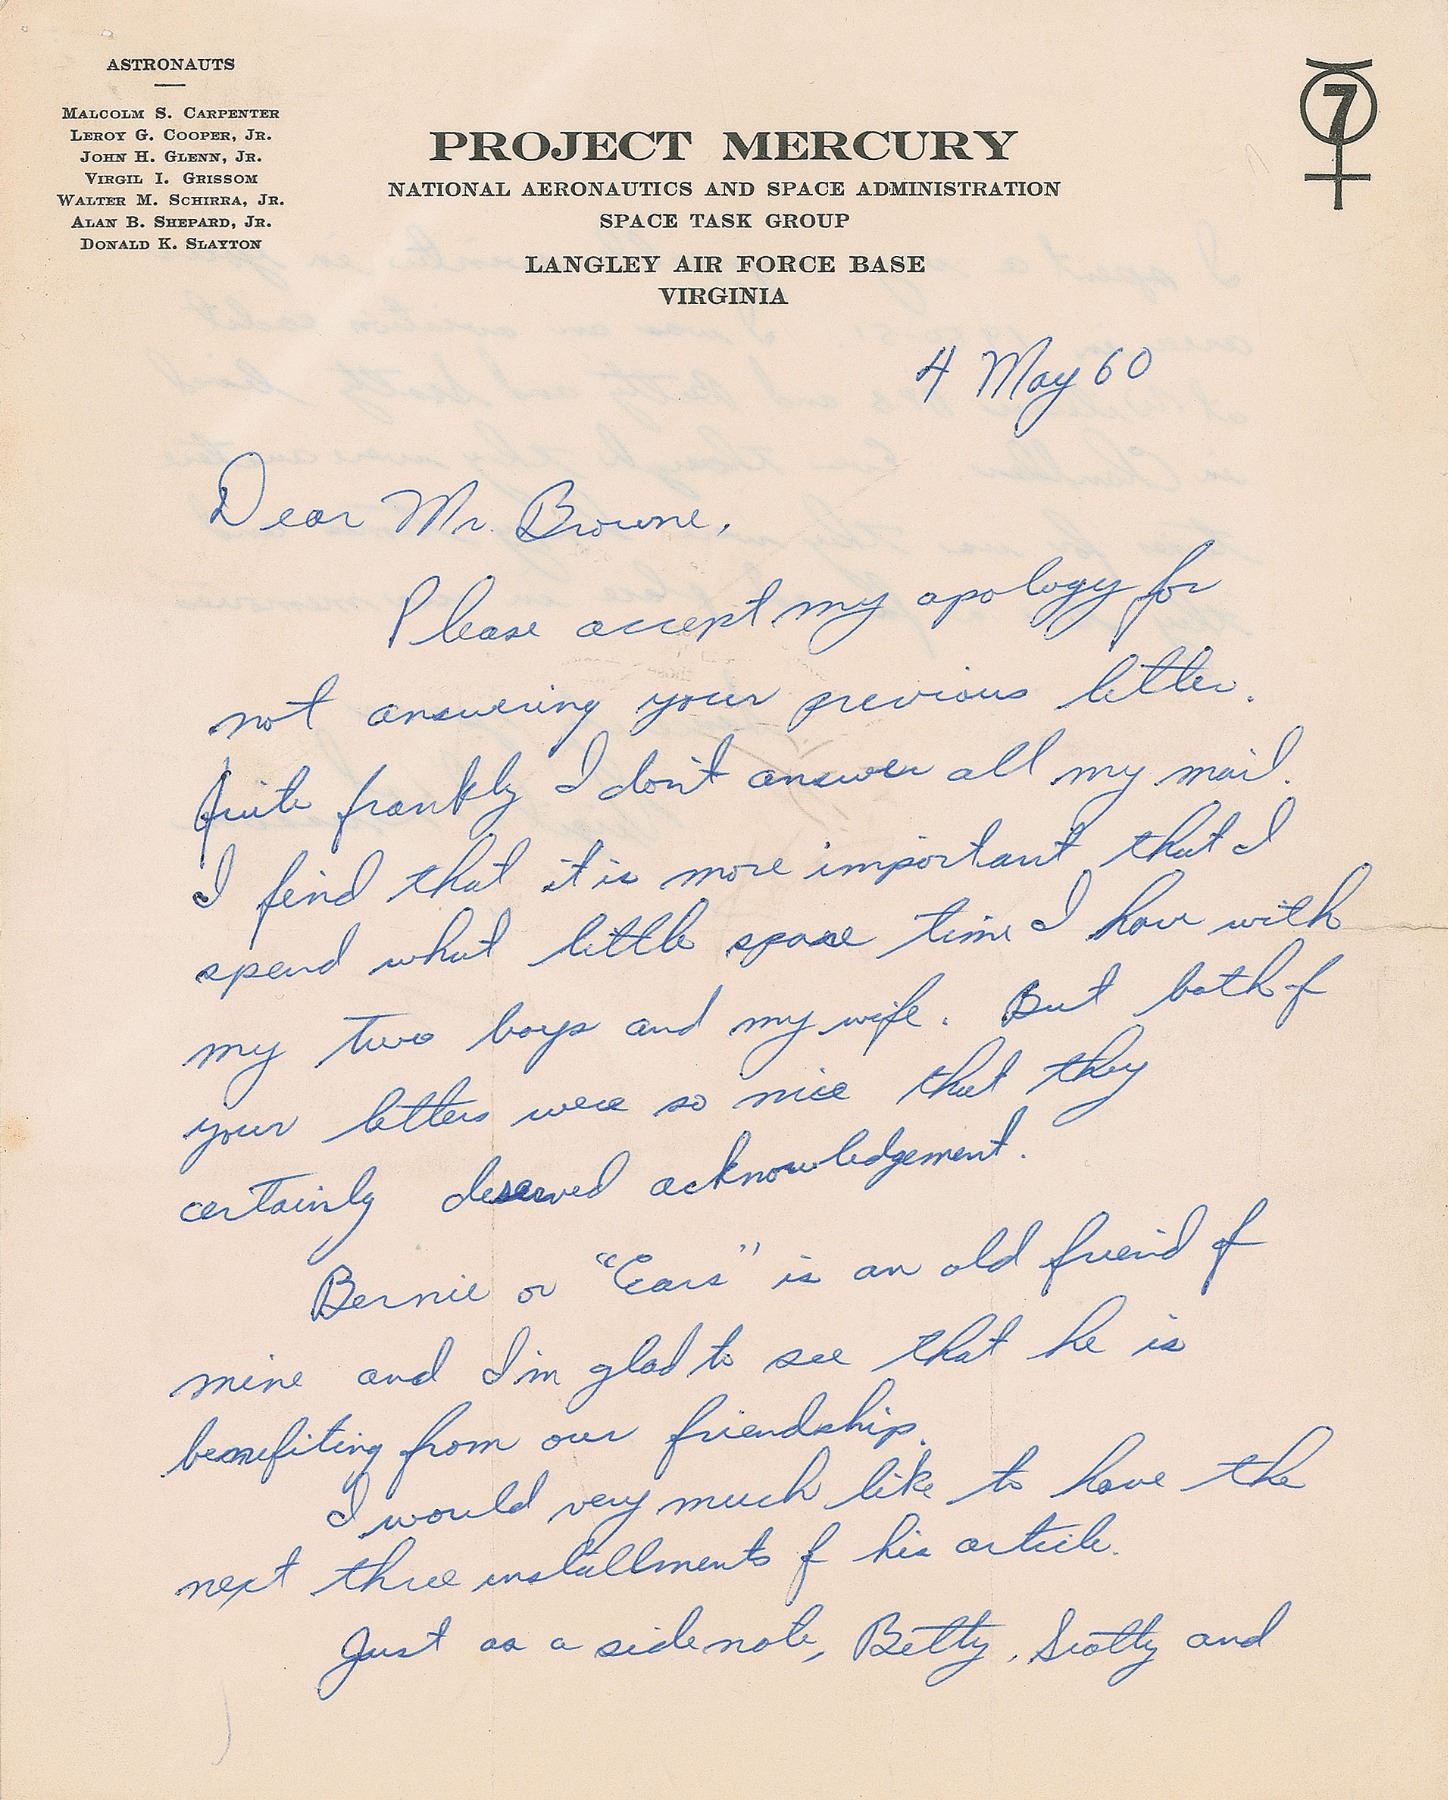 ASTRONAUTS
MALCOLM S. CARPENTER
LEROY G. COOPER, JR.
JOHN H. GLENN, JR.
VIRGIL I. GRISSOM
WALTER M. SCHIRRA, JR.
ALAN B. SHEPARD, JR.
DONALD K. SLAYTON
7
PROJECT MERCURY
NATIONAL AERONAUTICS AND SPACE ADMINISTRATION
SPACE TASK GROUP
LANGLEY AIR FORCE BASE
VIRGINIA
4 May 60
Dear Mr. Browne,
Please accept my apology for
not answering your previous letter.
Quite frankly I don't answer all my mail.
I feind that it is more important that I
spend what little spare time I have with
my two boys and my wife. But both of
your letters were so nice that they
certainly deserved acknowledgement.
Bernie or "Ears" is an old friend of
mine and I'm glad to see that he is
benefiting from our friendship.
I would very much like to have the
next three installments of his article.
Just as a sidenote, Betty, Scotty and